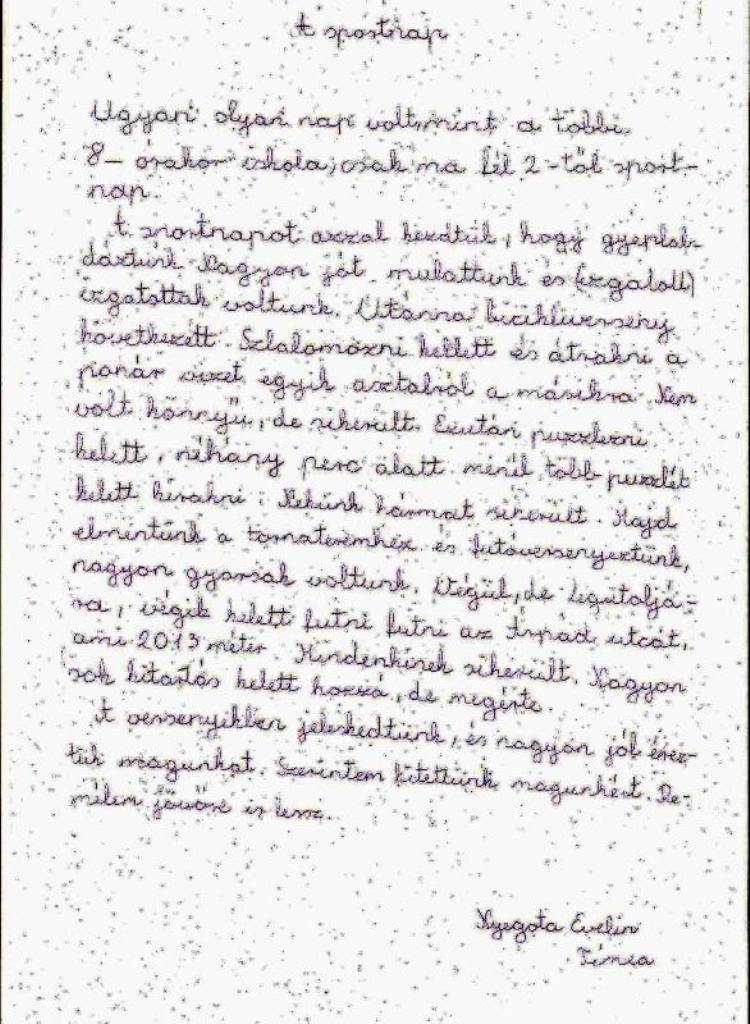 A sportnap
Ugyan olyan nap volt, mint a többi.
8- órakor iskola, csak ma fél 2-től sport-
nap.
A sportnapot azzal kezdtük, hogy gyeplab-
dáztunk Nagyon jót mulattunk és (izgalott)
izgatottak voltunk. Utánna bicikliverseny
következett. Szlalomozni kellett és átrakni a
pohár vizet egyik asztalról a másikra Nem
volt könnyű, de sikerült. Ezután puzzlezni
kelett, néhány perc alatt minél több puzzlét
kelett kirakni. Nekünk hármat sikerült. Majd
elmentünk a tornateremhez és futóversenyeztünk,
nagyon gyorsak voltunk. Végül, de legutoljá-
ra, végik kelett futni futni az Árpád utcát,
ami 2013 méter Mindenkinek sikerült. Nagyon
sok kitartás kelett hozzá, de megérte.
A versenyekben jeleskedtünk, és nagyon jól érez-
tük magunkat. Szerintem kitettünk magunkért. Re-
mélem jövőre is lessz.
Nyegota Evelin
Tímea